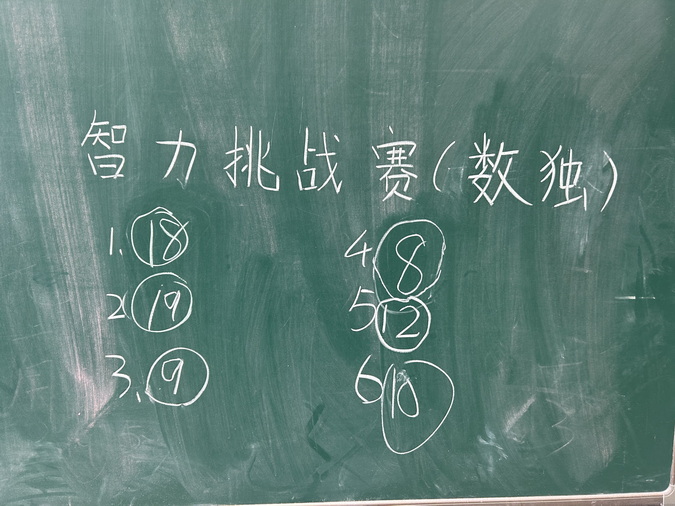 智力挑战赛(数独)
1. 18
2 19
3. 9
4. 8
5 12
6 10